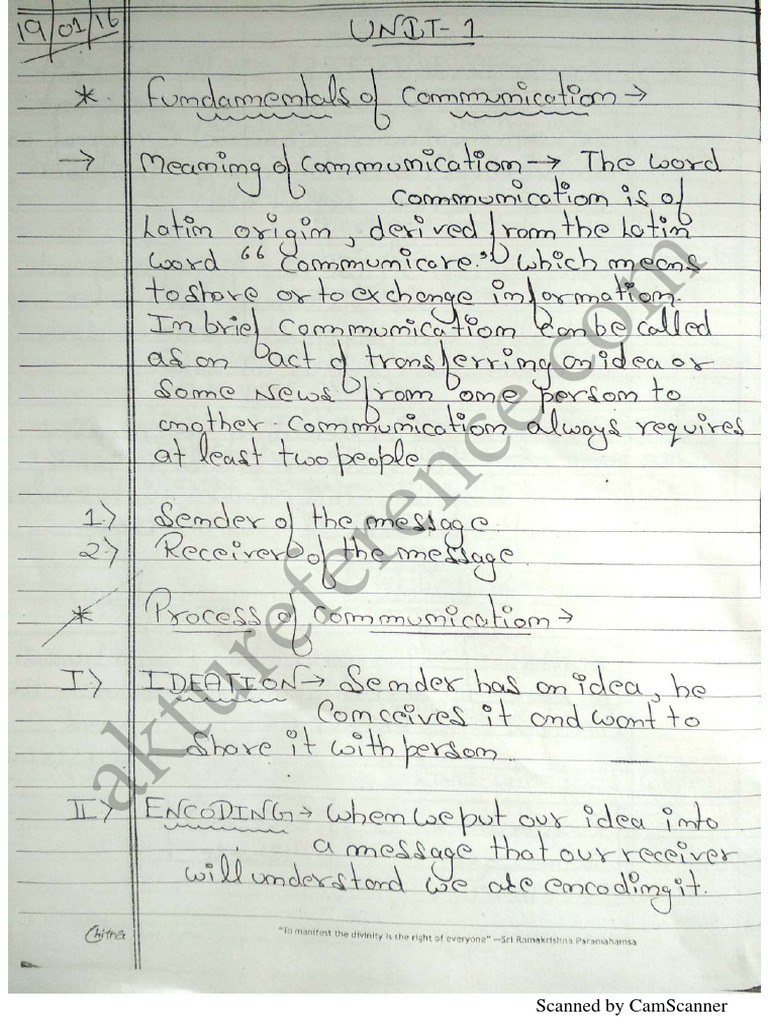 19/01/16
UNIT-1
* Fundamentals of Communication →
→ Meaning of Communication → The word
Communication is of
Latin origin, derived from the Latin
word "Communicare." which means
to share or to exchange information.
In brief Communication can be called
as an act of transferring an idea or
some news from one person to
another. Communication always requires
at least two people
1.) Sender of the message.
2.) Receiver of the message.
* Process of Communication →
I.) IDEATION → Sender has an idea, he
Conceives it and want to
share it with person.
II.) ENCODING → When we put our idea into
a message that our receiver
will understand we are encoding it.
Chitra
"To manifest the divinity is the right of everyone" —Sri Ramakrishna Paramahamsa
aktureference.com
Scanned by CamScanner